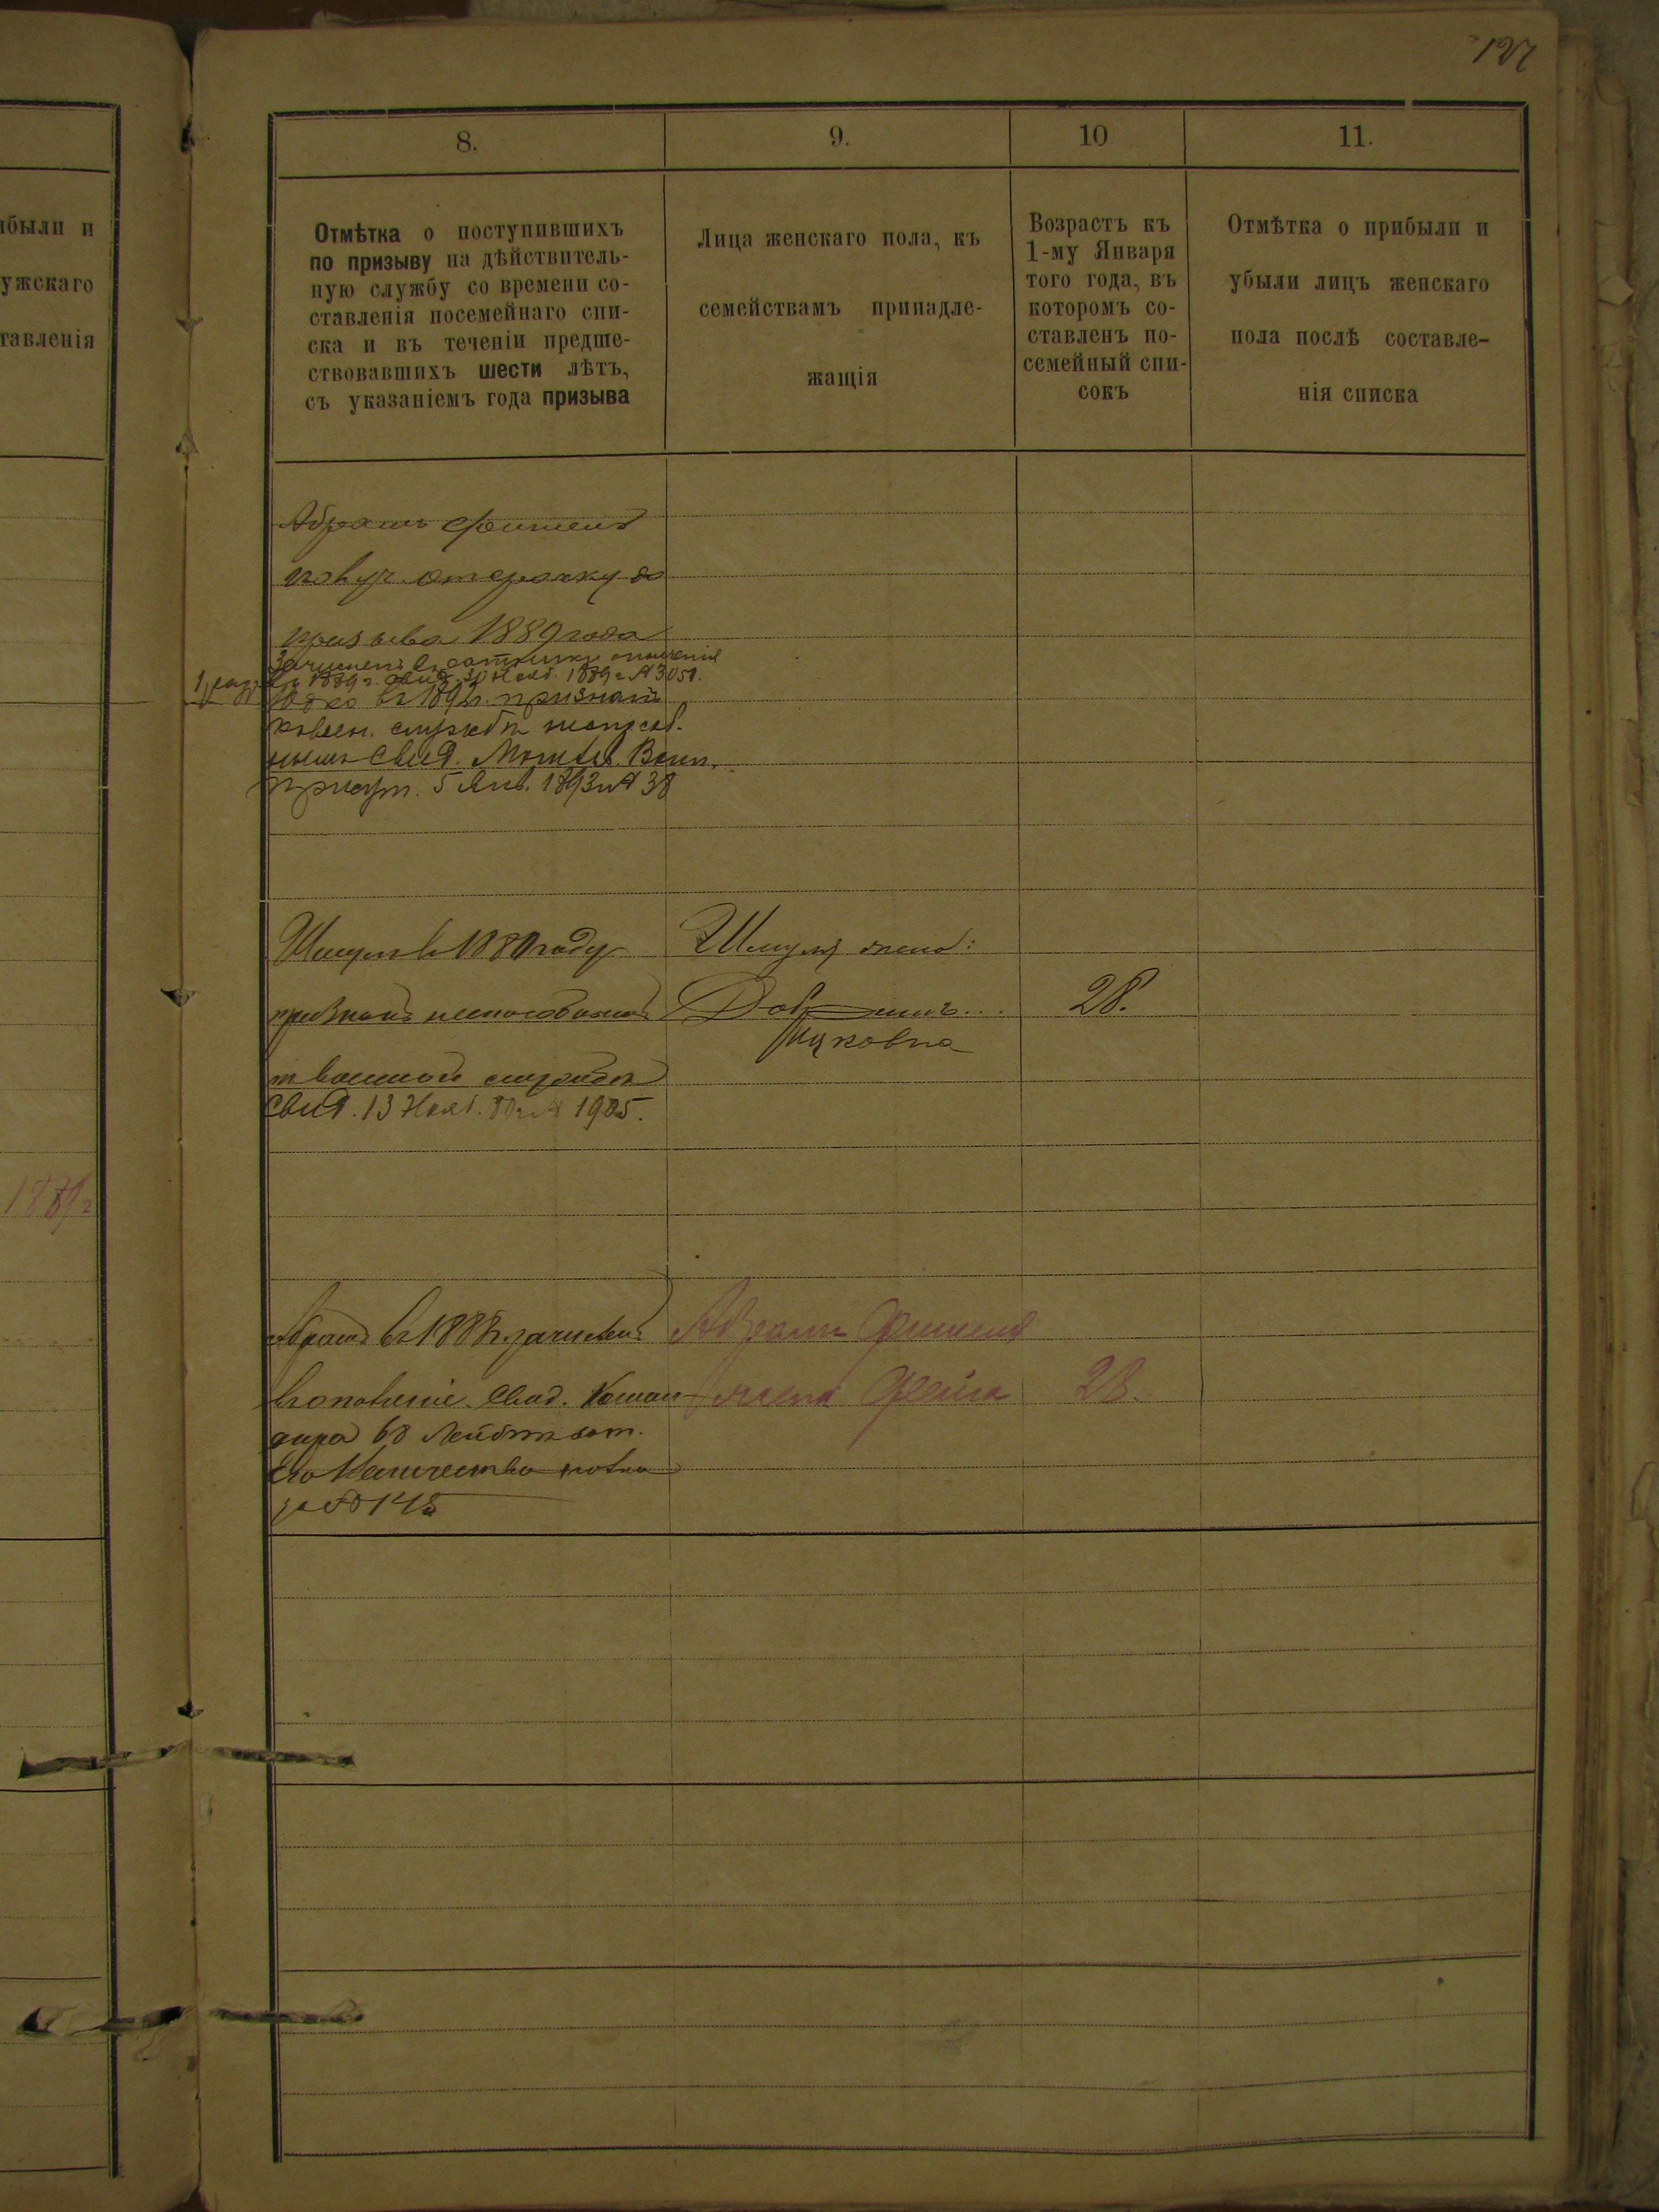 127
8.
9.
10
11.
Отмѣтка о поступившихъ
по призыву на дѣйствитель-
ную службу со времени со-
ставленія посемейнаго спи-
ска и въ теченіи предше-
ствовавшихъ шести лѣтъ,
съ указаніемъ года призыва
Лица женскаго пола, къ
семействамъ принадле-
жащія
Возрастъ къ
1-му Января
того года, въ
которомъ со-
ставленъ по-
семейный спи-
сокъ
Отмѣтка о прибыли и
убыли лицъ женскаго
пола послѣ составле-
нія списка
ибыли и
ужскаго
тавленія
Абрамъ Фишель
получ. отсрочку до
призыва 1889 года
зачисленъ въ ратники ополченія
1 разр. въ 1889 г. свид. 30 Нояб. 1889 г. № 3051.
въ 1892 г. признанъ
к воен. службѣ неспособ.
нымъ свид. Могилев. Воин.
Присут. 5 Янв. 1893 г. № 38
Шмуль въ 1880 году
признанъ неспособнымъ
къ военной службѣ
Свид. 13 Нояб. 80 г. № 1905.
Шмуля жена:
Ицковна
28.
1889 г
Абрамъ въ 1882 г. зачисленъ
въ ополченіе. Свид. Коман
дира 68 Лейбъ пѣхот.
Его Величества полка
за № 148
Абрамъ Фишеля
жена Фейга
28.